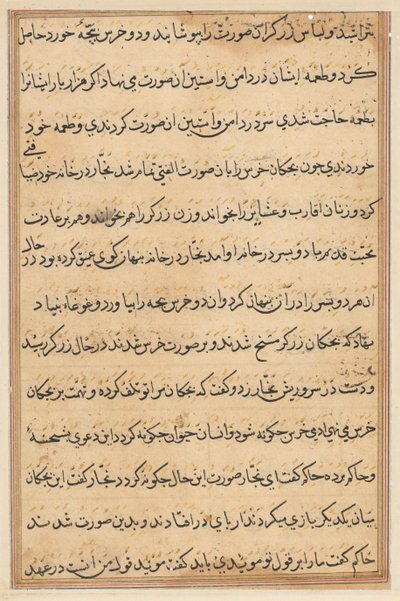 بتراشید و لباس زرکر آن صورت را بپوشانید و دو خرس بچهٔ خورد حاصل
کرد و طعمه ایشان در دامن و استین آن صورت می نهاد اکر هزار بار ایشانرا
بطعمه حاجت شدی سر در دامن و آستین آن صورت کردندی و طعمه خود
خوردندی چون بچکان خرس را بان صورت الفتی تمام شد نجار در خانه خود ضیافتی
کرد و زنان اقارب و عشایر را بخواند و زن زرکر را هم بخواند و هم بر عادت
محبت قدیم با دو پسر در خانه او آمد نجار در خانه پنهان کوی عمیق کرده بود در حال
آن هر دو پسر را در آن پنهان کرد و آن دو خرس بچه را بیاورد و غوغاء بنیاد
نهاد که بچکان زرکر مسخ شدند و بر صورت خرس شدند در حال زرکر رسید
و دست در سر و ریش نجار زد و کفت که بچکان مرا تو تلف کرده و تهمت بر بچکان
خرس می نهی ادمی خرس چکونه شود و انسان حیوان چکونه کردد این دعوی بشحنهٔ
و حاکم برده حاکم کفت ای نجار صورت این حال چکونه کردد نجار کفت این بچکان
میان یکدیکر بازی میکردند از پای در افتادند و بدین صورت شدند
حاکم کفت ما را بر قول تو مویدی باید کفت موید قول من آنست در عهد